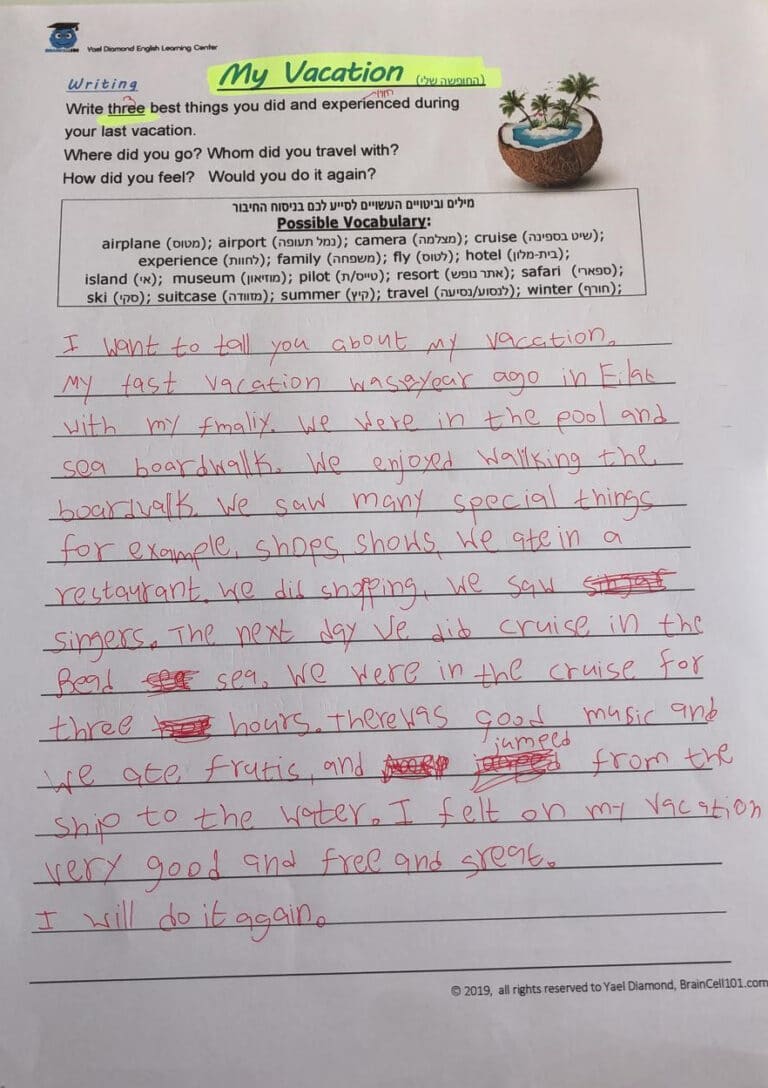 BRAINCELL101
Yael Diamond English Learning Center
Writing
My Vacation (החופשה שלי)
3
חווית
Write three best things you did and experienced during
your last vacation.
Where did you go? Whom did you travel with?
How did you feel? Would you do it again?
מילים וביטויים העשויים לסייע לכם בניסוח החיבור
Possible Vocabulary:
airplane (מטוס); airport (נמל תעופה); camera (מצלמה); cruise (שיט בספינה);
experience (לחוות); family (משפחה); fly (לטוס); hotel (בית-מלון);
island (אי); museum (מוזיאון); pilot (טייס/ת); resort (אתר נופש); safari (ספארי);
ski (סקי); suitcase (מזוודה); summer (קיץ); travel (לנסוע/נסיעה); winter (חורף);
I want to tall you about my vacation.
My last vacation was a year ago in Eilat
with my fmaliy. We were in the pool and
sea boardwalk. We enjoyed wallking the
boardvalk. We saw many special things
for example, shops, shows, we ate in a
restaurant. we did shopping, we saw
singers. The next day we did cruise in the
Read sea. We were in the cruise for
three hours. There was good music and
jumped
we ate frutis, and from the
ship to the water. I felt on my vacation
very good and free and great.
I will do it again.
© 2019, all rights reserved to Yael Diamond, BrainCell101.com